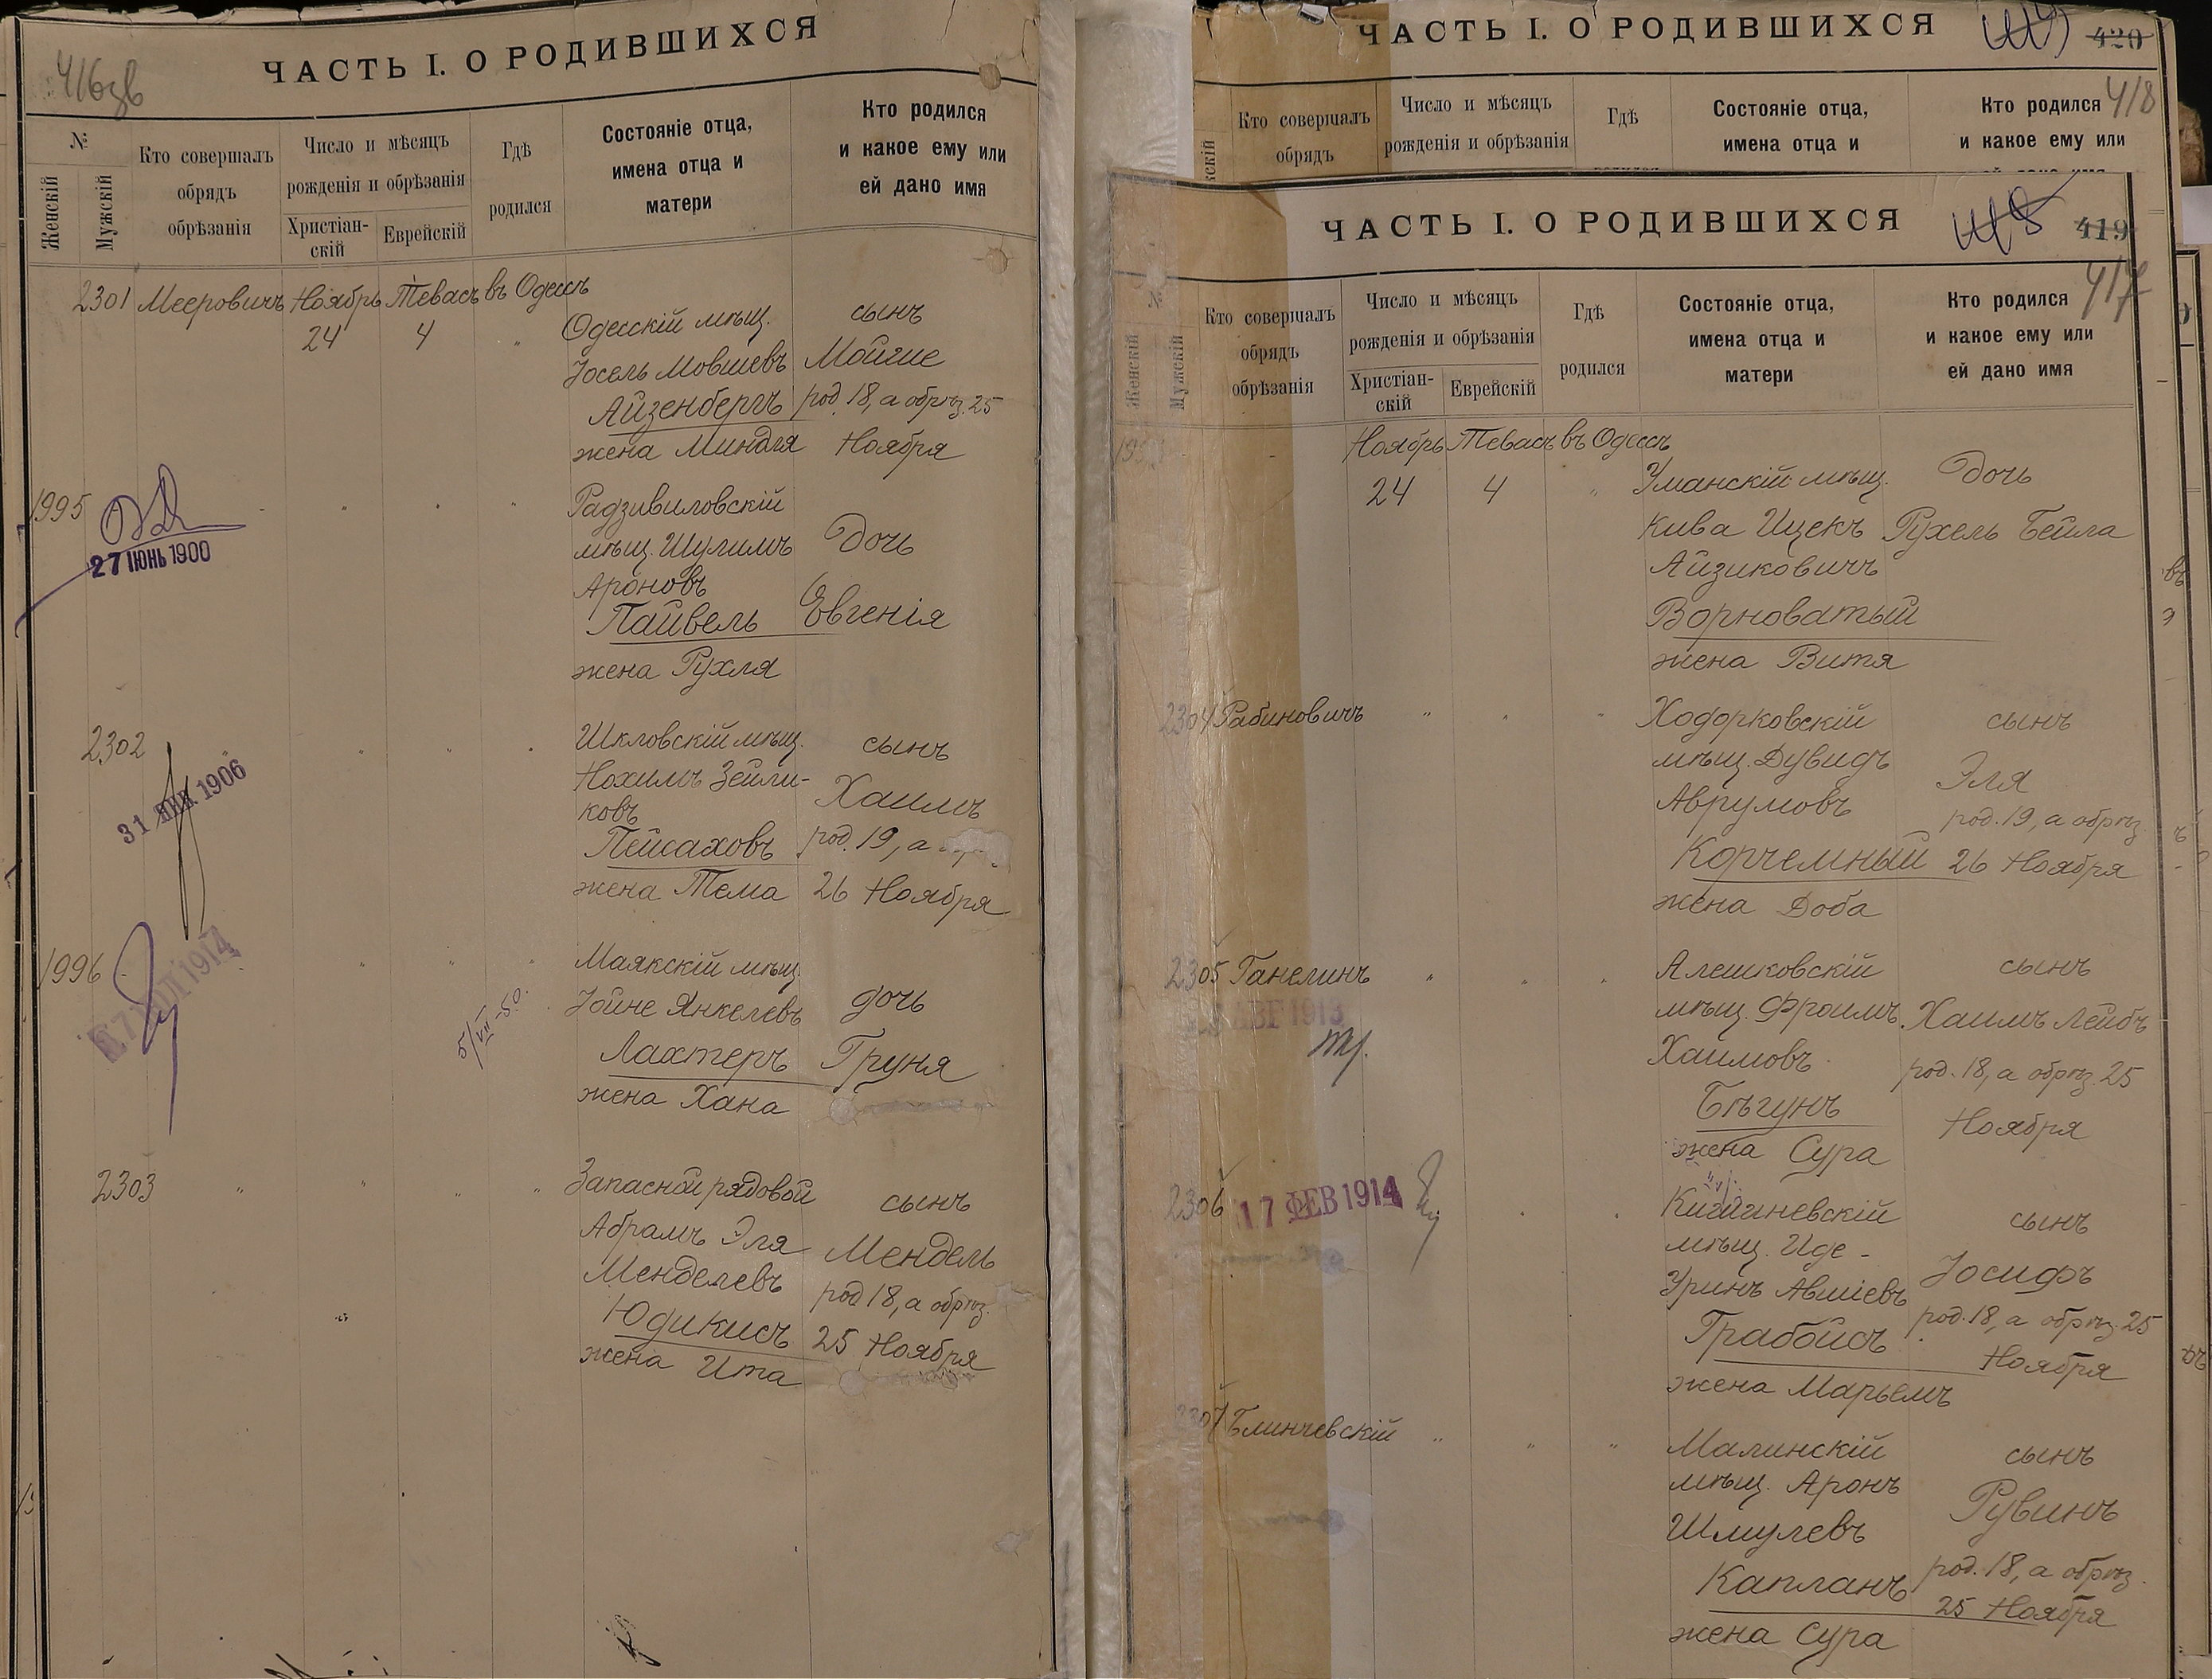 416 об
ЧАСТЬ I. О РОДИВШИХСЯ
№
Женскій
Мужскій
Кто совершалъ
обрядъ
обрѣзанія
Число и мѣсяцъ
рожденія и обрѣзанія
Христіан-
скій
Еврейскій
Гдѣ
родился
Состояніе отца,
имена отца и
матери
Кто родился
и какое ему или
ей дано имя
2301 Мееровичъ Ноябрь Тевасъ въ Одессѣ
24 4 "
Одесскій мѣщ.
Іосель Мовшевъ
Айзенбергъ
жена Миндля
сынъ
Мойше
род. 18, а обрѣз. 25
Ноября
1995
27 ІЮНЬ 1900
Радзивиловскій
мѣщ. Шулимъ
Ароновъ
Пайвель
жена Рухля
Дочь
Евгенія
2302
31 ЯНВ 1906
Шкловскій мѣщ.
Нохимъ Зейли-
ковъ
Пейсаховъ
жена Тема
сынъ
Хаимъ
род. 19, а
26 Ноября
1996
1914
5/VII-50.
Маякскій мѣщ.
Іойне Янкелевъ
Лахтеръ
жена Хана
дочь
Груня
2303
Запасной рядовой
Абрамъ Эля
Менделевъ
Юдикисъ
жена Ита
сынъ
Мендель
род 18, а обрѣз.
25 Ноября
ЧАСТЬ I. О РОДИВШИХСЯ
420
418
Кто совершалъ
обрядъ
Число и мѣсяцъ
рожденія и обрѣзанія
Гдѣ
Состояніе отца,
имена отца и
Кто родился
и какое ему или
ЧАСТЬ I. О РОДИВШИХСЯ
418
419
417
№
Женскій
Мужскій
Кто совершалъ
обрядъ
обрѣзанія
Число и мѣсяцъ
рожденія и обрѣзанія
Христіан-
скій
Еврейскій
Гдѣ
родился
Состояніе отца,
имена отца и
матери
Кто родился
и какое ему или
ей дано имя
Ноябрь Тевасъ въ Одессѣ
24 4 "
Уманскій мѣщ.
Кива Ицекъ
Айзиковичъ
Ворноватый
жена Витя
Дочь
Рухель Бейла
2304 Рабиновичъ
Ходорковскій
мѣщ. Дувидъ
Аврумовъ
Корчемный
жена Доба
сынъ
Эля
род. 19, а обрѣз.
26 Ноября
2305 Ганелинъ
АВГ 1913
Алешковскій
мѣщ. Фроимъ
Хаимовъ
Бѣгунъ
жена Сура
сынъ
Хаимъ Лейбъ
род. 18, а обрѣз. 25
Ноября
2306
17 ФЕВ 1914
Кишиневскій
мѣщ. Иде-
Уринъ Авшіевъ
Грабойсъ
жена Марьемъ
сынъ
Іосифъ
род. 18, а обрѣз. 25
Ноября
2307 Блинчевскій
Малинскій
мѣщ. Аронъ
Шмулевъ
Капланъ
жена Сура
сынъ
Рувинъ
род. 18, а обрѣз.
25 Ноября